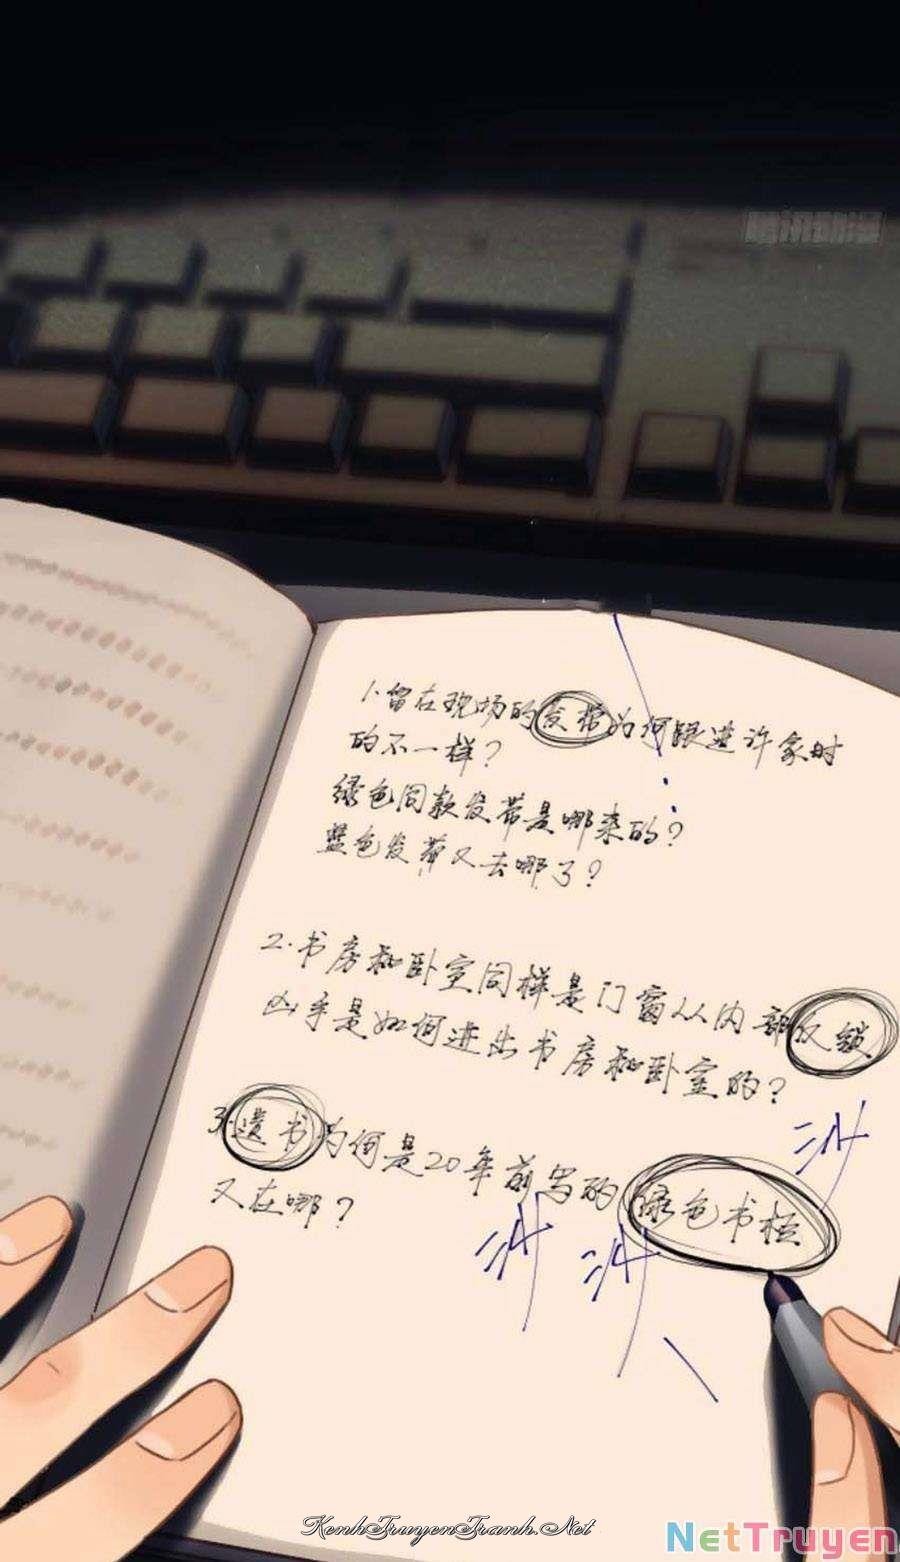 1.留在现场的发带为何跟进许家时
的不一样?
绿色同款发带是哪来的?
蓝色发带又去哪了?
2.书房和卧室同样是门窗从内部反锁
凶手是如何进出书房和卧室的?
3.遗书为何是20年前写的绿色书桓
又在哪?
沙
沙 沙
KenhTruyenTranh.Net
NetTruyen